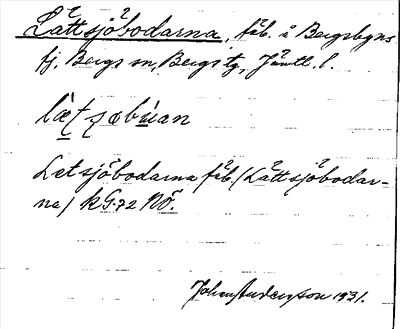 Lättsjöbodarna, fäb. å Bergsbyns
fj. Bergs sn, Bergs tg, Jämtl. l.
Letsjöbodarna fäb. (Lättsjöbodar-
na) kG.72 NÖ.
Johan Anderson 1931.